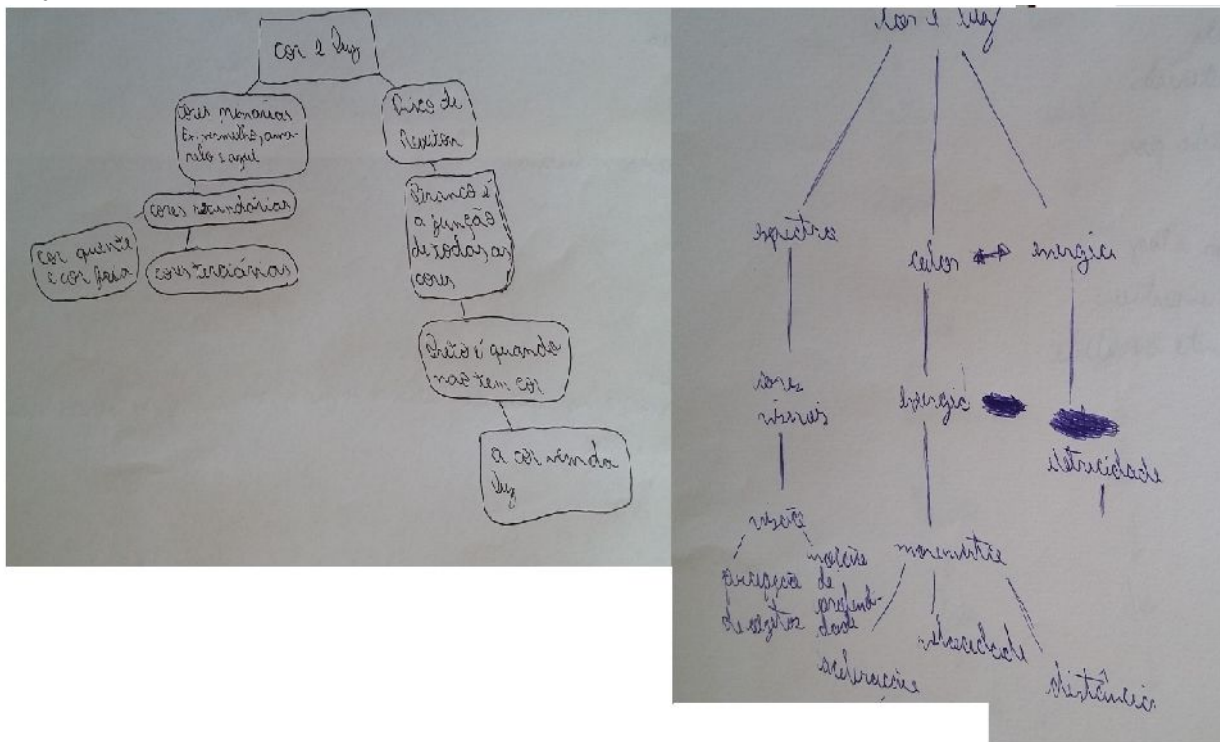 cor e luz
cores primárias
Ex: vermelho, ama-
relo e azul
cores secundárias
cor quente
e cor fria
cores terciárias
Disco de
Newton
Branco é
a junção
de todas as
cores
Preto é quando
não tem cor
a cor vem da
luz
cor e luz
espectro
calor
energia
cores
visíveis
energia
eletricidade
visão
percepção
de objetos
noção
de
profundi-
dade
movimento
aceleração
velocidade
distância